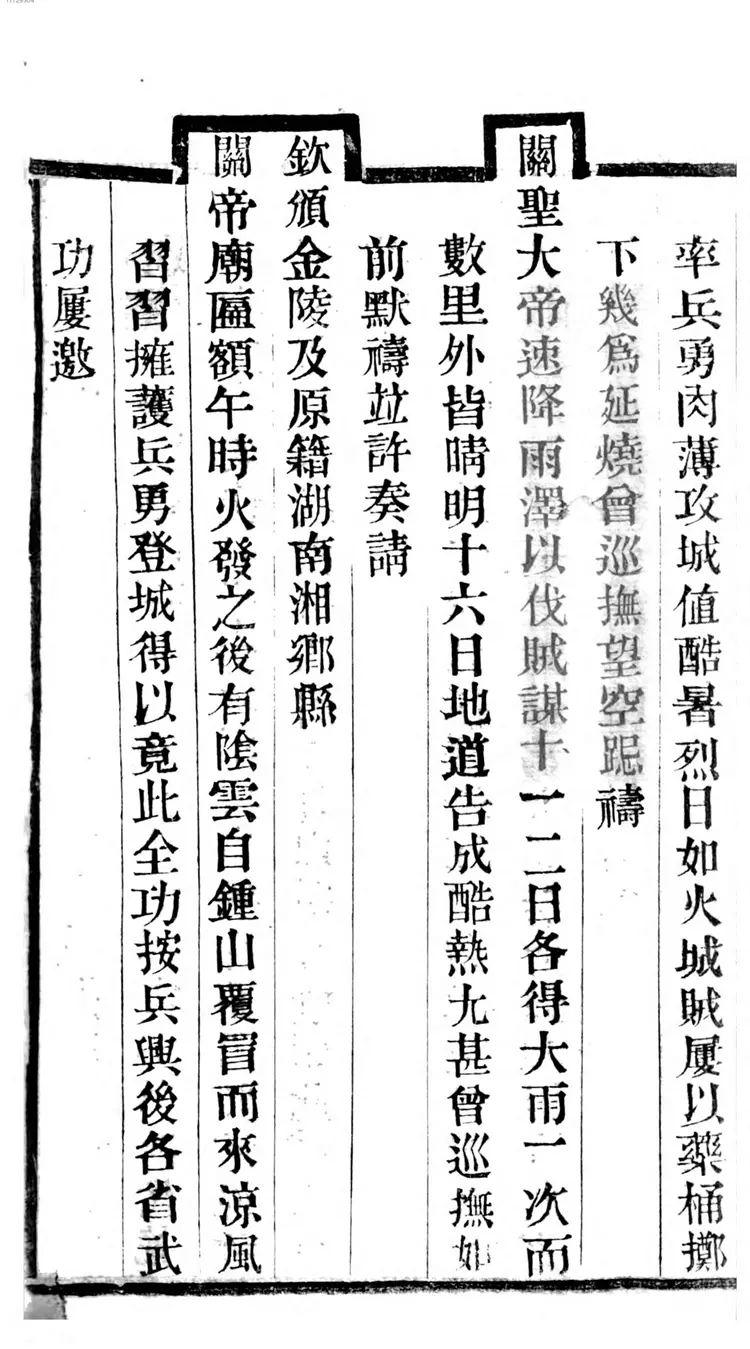 率兵勇肉薄攻城值酷暑烈日如火城賊屢以藥桶擲
下幾為延燒曾巡撫望空跽禱
關聖大帝速降雨澤以伐賊謀十一二日各得大雨一次而
數里外皆晴明十六日地道告成酷熱尤甚曾巡撫如
前默禱並許奏請
欽頒金陵及原籍湖南湘鄉縣
關帝廟匾額午時火發之後有陰雲自鍾山覆冒而來涼風
習習擁護兵勇登城得以竟此全功按兵興後各省武
功屢邀